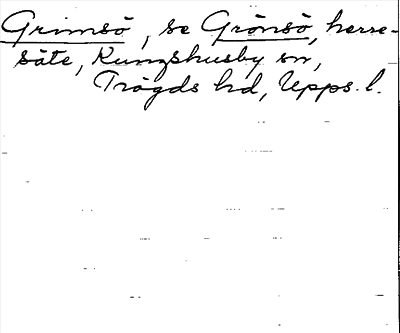 Grimsö, se Grönsö, herre-
säte, Kungshusby sn,
Trögds hd, Upps. l.